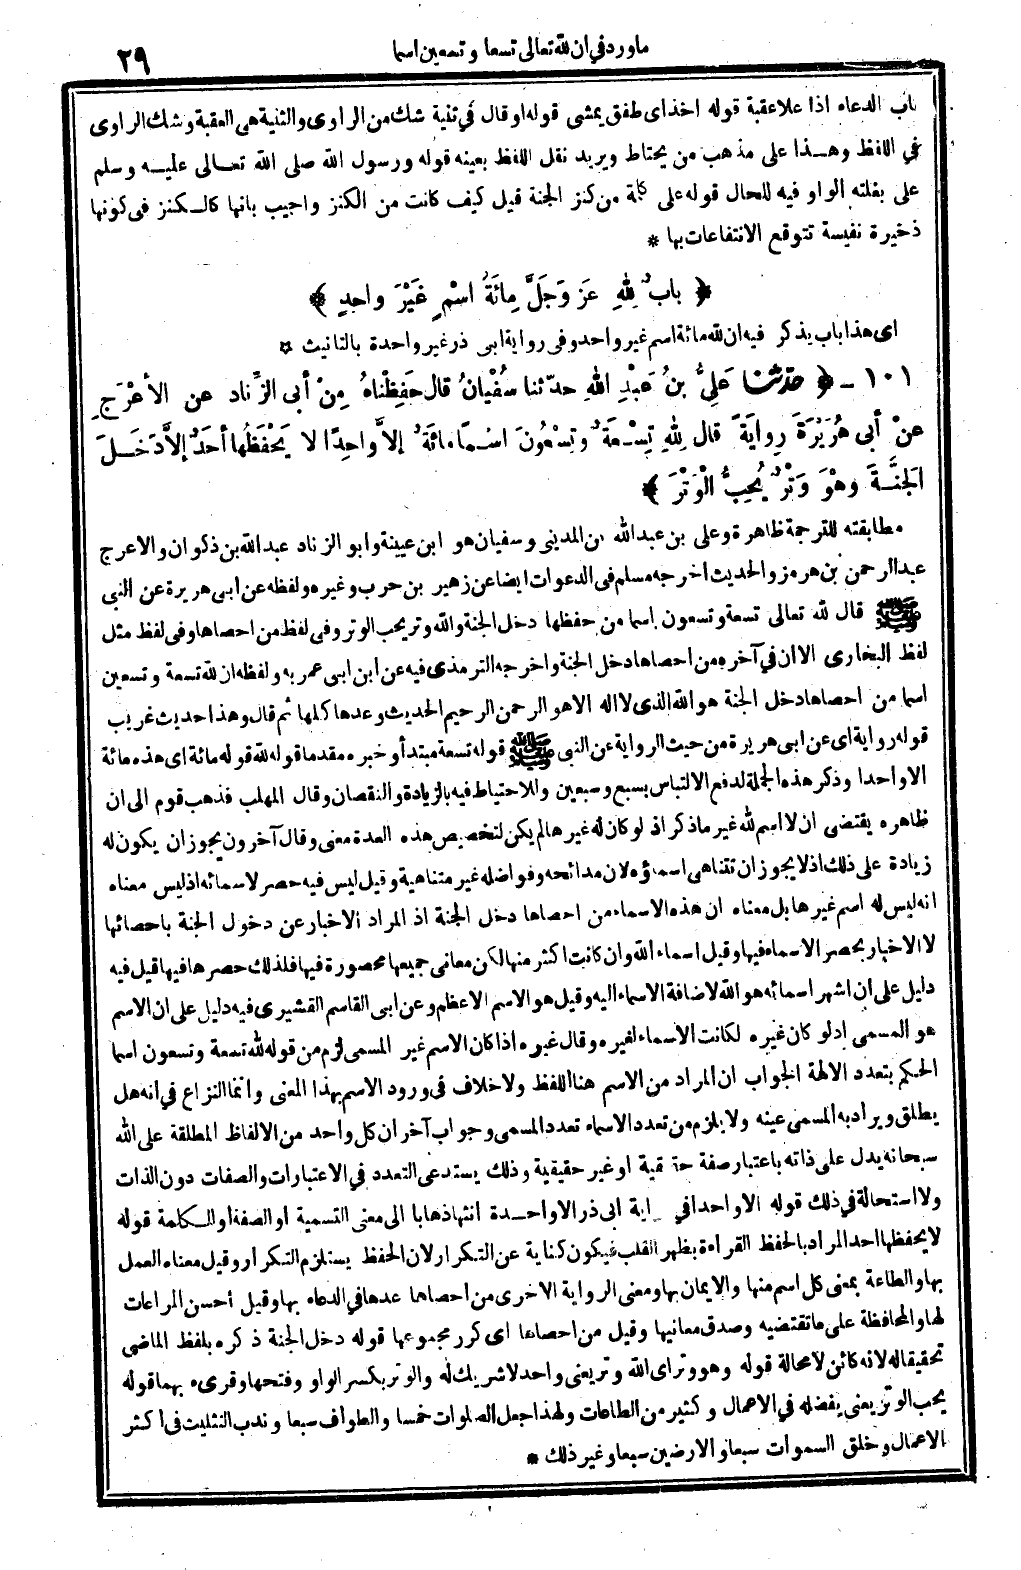 ماورد في ان لله تعالى تسعا وتسعين اسما
٢٩
باب الدعاء اذا علا عقبة قوله اخذ اى طفق يمشى قوله او قال في ثنية شك من الراوى والثنية هى العقبة وشك الراوى
في اللفظ وهذا على مذهب من يحتاط ويريد نقل اللفظ بعينه قوله ورسول الله صلى الله تعالى عليه وسلم
على بغلته الواو فيه للحال قوله على كلمة من كنز الجنة قيل كيف كانت من الكنز واجيب بانها كالكنز فى كونها
ذخيرة نفيسة تتوقع الانتفاعات بها *
﴿ بابٌ لِلهِ عَزَّ وَجَلَّ مِائَةُ اسْمٍ غَيْرَ واحِدٍ ﴾
اى هذا باب يذكر فيه ان لله مائة اسم غير واحد وفى رواية ابى ذر غير واحدة بالتانيث *
١٠١ - ﴿ حدثنا عَلِيُّ بنُ عَبْدِ اللهِ حدّثنا سُفْيانُ قال حَفِظْناهُ مِنْ أبى الزِّناد عن الأعْرَجِ
عنْ أبى هُرَيْرَةَ رِوايَةً قال لِلهِ تِسْعَةٌ وتِسْعُونَ اسْمًا مائَةٌ إلاَّ واحِدًا لا يَحْفَظُها أحَدٌ إلاَّ دَخَلَ
الجَنَّةَ وهْوَ وَتْرٌ يُحِبُّ الْوَتْرَ ﴾
مطابقته للترجمة ظاهرة وعلى بن عبدالله بن المدينى وسفيان هو ابن عيينة وابو الزناد عبدالله بن ذكوان والاعرج
عبدالرحمن بن هرمز والحديث اخرجه مسلم فى الدعوات ايضا عن زهير بن حرب وغيره ولفظه عن ابى هريرة عن النبى
ﷺ قال لله تعالى تسعة وتسعون اسما من حفظها دخل الجنة والله وتر يحب الوتر وفى لفظ من احصاها وفى لفظ مثل
لفظ البخارى الا ان في آخره من احصاها دخل الجنة واخرجه الترمذى فيه عن ابن ابى عمر به ولفظه ان لله تسعة وتسعين
اسما من احصاها دخل الجنة هو الله الذى لا اله الا هو الرحمن الرحيم الحديث وعدها كلها ثم قال وهذا حديث غريب
قوله رواية اى عن ابى هريرة من حيث الرواية عن النبى ﷺ قوله تسعة مبتدأ وخبره مقدما قوله لله قوله مائة اى هذه مائة
الا واحدا وذكر هذه الجملة لدفع الالتباس بسبع وسبعين وللاحتياط فيه بالزيادة والنقصان وقال المهلب فذهب قوم الى ان
ظاهره يقتضى ان لا اسم لله غير ما ذكر اذ لو كان له غيرها لم يكن لتخصيص هذه العدة معنى وقال آخرون يجوز ان يكون له
زيادة على ذلك اذ لا يجوز ان تتناهى اسماؤه لان مدائحه وفواضله غير متناهية وقيل ليس فيه حصر لاسمائه اذ ليس معناه
انه ليس له اسم غيرها بل معناه ان هذه الاسماء من احصاها دخل الجنة اذ المراد الاخبار عن دخول الجنة باحصائها
لا الاخبار بحصر الاسماء فيها وقيل اسماء الله وان كانت اكثر منها لكن معانى جميعها محصورة فيها فلذلك حصرها فيها قيل فيه
دليل على ان اشهر اسمائه هو الله لاضافة الاسماء اليه وقيل هو الاسم الاعظم وعن ابى القاسم القشيرى فيه دليل على ان الاسم
هو المسمى اذ لو كان غيره لكانت الاسماء لغيره وقال غيره اذا كان الاسم غير المسمى لزم من قوله لله تسعة وتسعون اسما
الحكم بتعدد الالهة الجواب ان المراد من الاسم هنا اللفظ ولا خلاف فى ورود الاسم بهذا المعنى وانما النزاع في انه هل
يطلق ويراد به المسمى عينه ولا يلزم من تعدد الاسماء تعدد المسمى وجواب آخر ان كل واحد من الالفاظ المطلقة على الله
سبحانه يدل على ذاته باعتبار صفة حقيقية او غير حقيقية وذلك يستدعى التعدد في الاعتبارات والصفات دون الذات
ولا استحالة في ذلك قوله الا واحدا في رواية ابى ذر الا واحدة انثها ذهابا الى معنى التسمية او الصفة او الكلمة قوله
لا يحفظها احد المراد بالحفظ القراءة بظهر القلب فيكون كناية عن التكرار لان الحفظ يستلزم التكرار وقيل معناه العمل
بها والطاعة بمعنى كل اسم منها والايمان بها ومعنى الرواية الاخرى من احصاها عدها في الدعاء بها وقيل أحسن المراعات
لها والمحافظة على ما تقتضيه وصدق معانيها وقيل من احصاها اى كرر مجموعها قوله دخل الجنة ذكره بلفظ الماضى
تحقيقا له لانه كائن لا محالة قوله وهو وتر اى الله وتر يعنى واحد لا شريك له والوتر بكسر الواو وفتحها وقرىء بهما قوله
يحب الوتر يعنى يفضله في الاعمال وكثير من الطاعات ولهذا جعل الصلوات خمسا والطواف سبعا وندب التثليث فى اكثر
الاعمال وخلق السموات سبعا والارضين سبعا وغير ذلك *